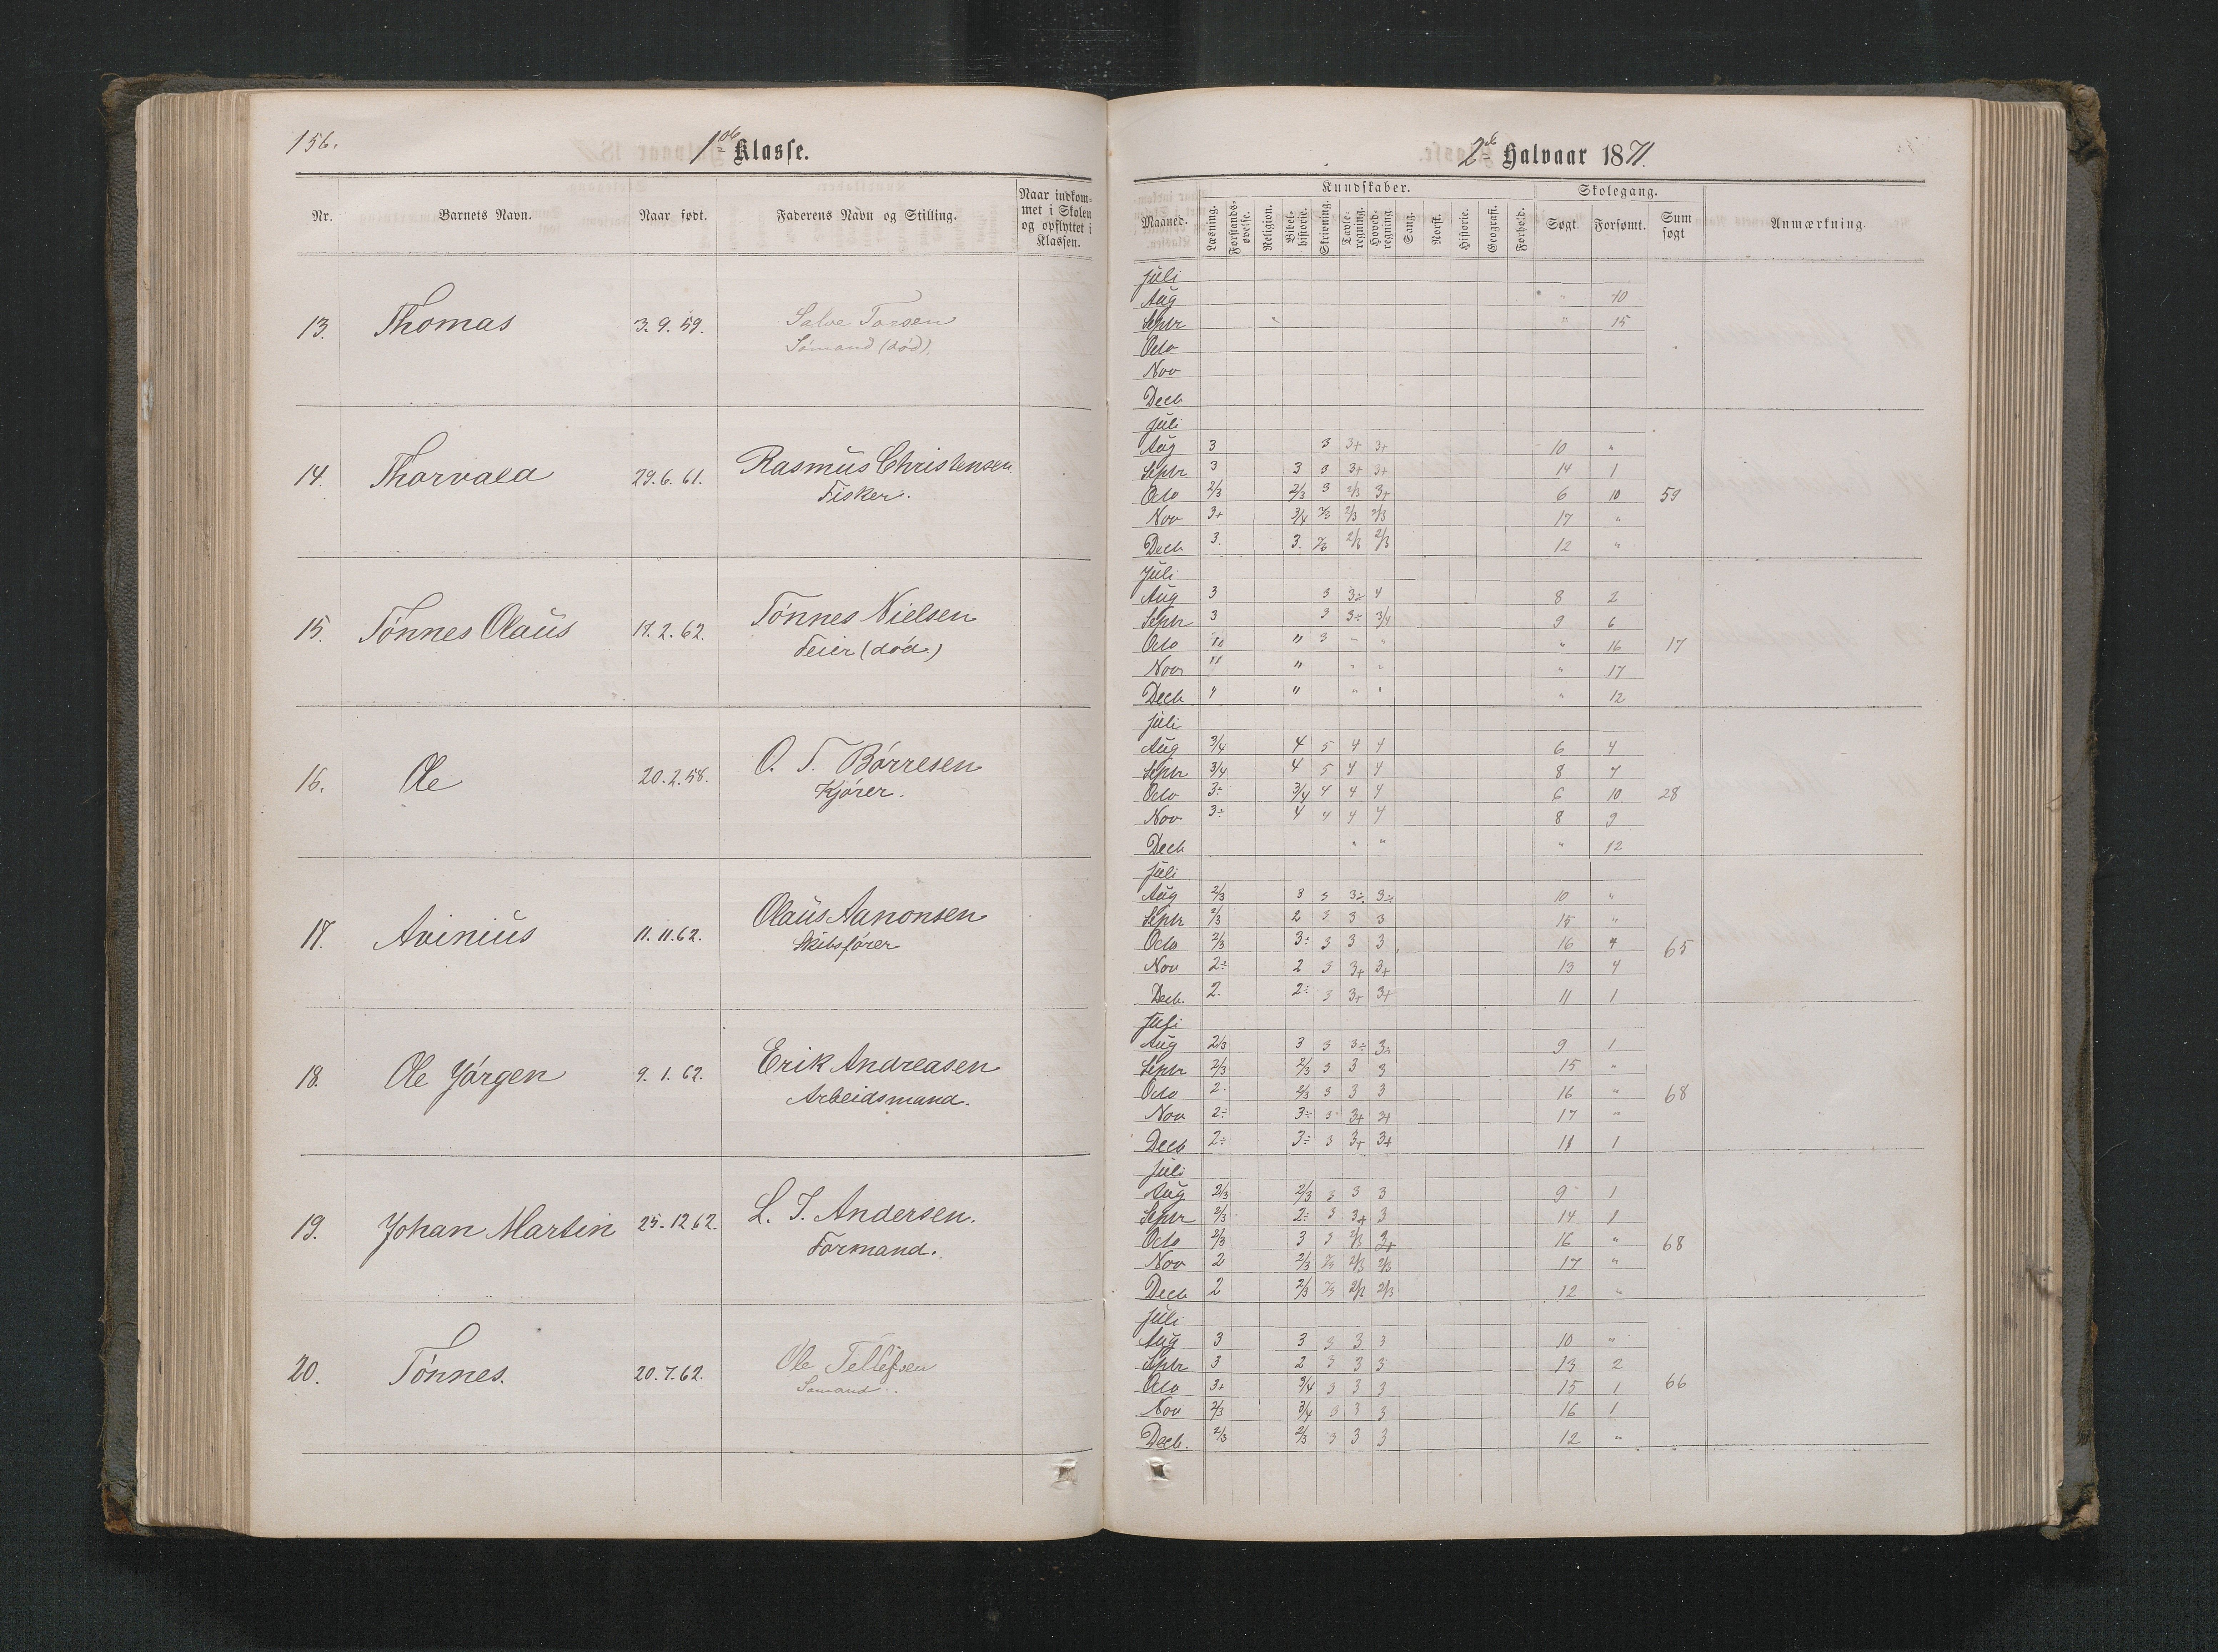 156.
1ste Klasse.
Nr. Barnets Navn. Naar født. Faderens Navn og Stilling. Naar indkommet i Skolen og opflyttet i Klassen.
13. Thomas 3.9.59. Salve Torsen
Sömand (död).
14. Thorvald 29.6.61. Rasmus Christensen
Fisker.
15. Tönnes Olaus 17.2.62. Tönnes Nielsen
Feier (död.)
16. Ole 20.2.58. O. T. Börresen
Kjörer.
17. Avinius 11.11.62. Olaus Aanonsen
Skibsförer
18. Ole Jörgen 9.1.62. Erik Andreasen
Arbeidsmand.
19. Johan Martin 25.12 62. L. J. Andersen.
Formand.
20. Tönnes. 20.7.62. Ole Tellefsen
Sömand.
2det Halvaar 1871.
Kundskaber. Skolegang.
Maaned. Læsning. Forstandsøvelse. Religion. Bibelhistorie. Skrivning. Tavleregning. Hovedregning. Sang. Norsk. Historie. Geografi. Forhold. Søgt. Forsømt. Sum søgt Anmærkning.
Juli
Aug " 10
Septr " 15
Octo
Nov
Decb
Juli
Aug 3 3 3+ 3+ 10 "
Septr 3 3 3 3+ 3+ 14 1
Octo 2/3 2/3 3 2/3 3+ 6 10 59
Nov 3+ 3/4 2/3 2/3 2/3 17 "
Decb 3. 3. 2/3 2/3 2/3 12 "
Juli
Aug 3 3 3÷ 4 8 2
Septr 3 3 3÷ 3/4 9 6
Octo " " 3 " " " 16 17
Nov " " " " " 17
Decb " " " " " 12
Juli
Aug 3/4 4 5 4 4 6 4
Septr 3/4 4 5 4 4 8 7
Octo 3÷ 3/4 4 4 4 6 10 28
Nov 3÷ 4 4 4 4 8 9
Decb " " " 12
Juli
Aug 2/3 3 3 3÷ 3÷ 10 "
Septr 2/3 2 3 3 3 15 "
Octo 2/3 3÷ 3 3 3 16 " 65
Nov 2÷ 2 3 3+ 3+ 13 4
Decb. 2. 2÷ 3 3+ 3+ 11 1
Juli
Aug 2/3 3 3 3÷ 3÷ 9 1
Septr 2/3 2/3 3 3 3 15 "
Octo 2. 2/3 3 3 3 16 " 68
Nov 2÷ 3÷ 3 3+ 3+ 17 "
Decb 2÷ 3÷ 3 3+ 3+ 11 1
Juli
Aug 2/3 2/3 3 3 3 9 1
Septr 2/3 2÷ 3 3+ 3 14 1
Octo 2/3 3 3 2/3 3+ 16 " 68
Nov 2 2/3 2/3 2/3 2/3 17 "
Decb 2 2/3 2/3 2/3 2/3 12 "
Juli
Aug 3 3 3 3 3 10 "
Septr 3 2 3 3 3 13 2
Octo 3+ 3/4 3 3 3 15 1 66
Nov 2/3 3/4 3 3 3 16 1
Decb. 2/3 2/3 3 3 3 12 "